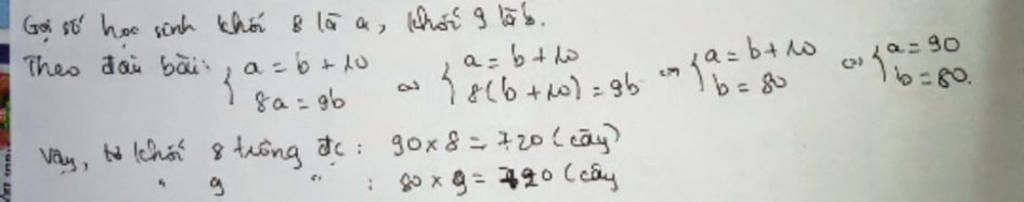 Gọi số học sinh khối 8 là a, khối 9 là b.
Theo đầu bài: { a = b + 10 ; 8a = 9b ⇔ { a = b + 10 ; 8(b + 10) = 9b ⇔ { a = b + 10 ; b = 80 ⇔ { a = 90 ; b = 80.
Vậy, khối 8 trồng đc: 90 x 8 = 720 (cây)
" 9 " : 80 x 9 = 720 (cây